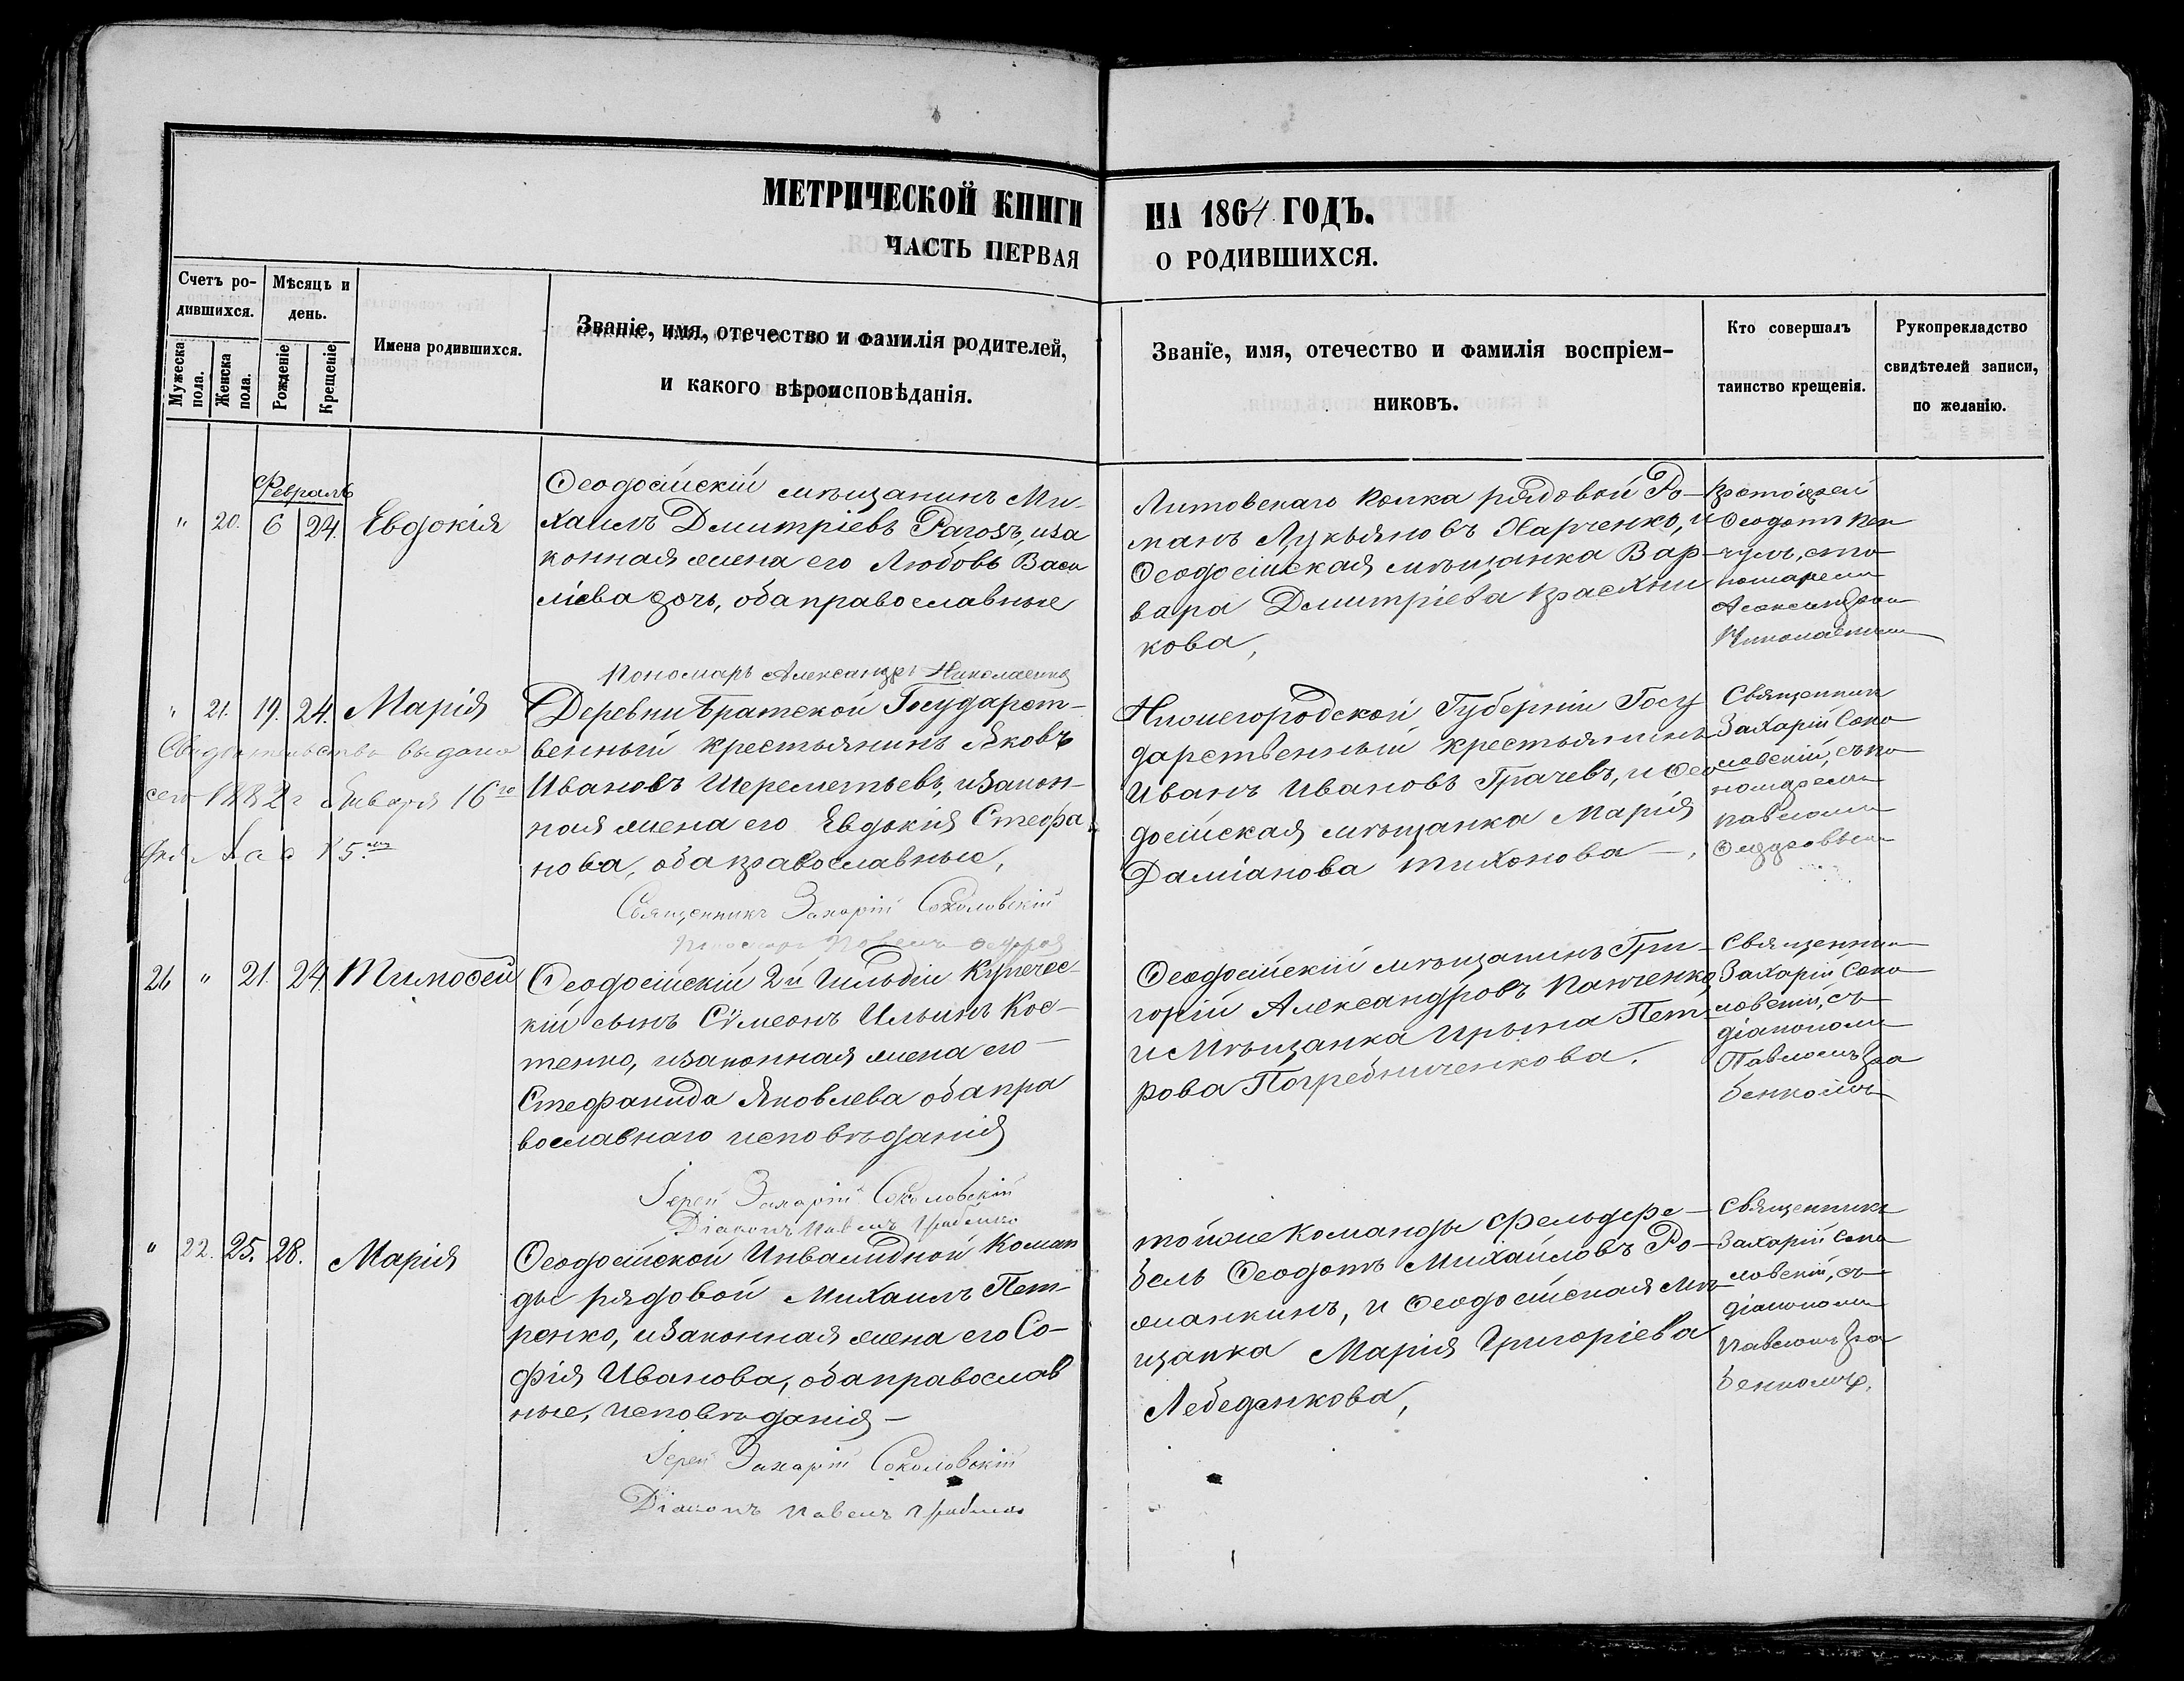 МЕТРИЧЕСКОЙ КНИГИ НА 1864 ГОДЪ.
ЧАСТЬ ПЕРВАЯ О РОДИВШИХСЯ.
Счетъ ро-
дившихся.
Мужеска пола.
Женска пола.
Мѣсяцъ и
день.
Рожденіе
Крещеніе
Имена родившихся.
Званіе, имя, отечество и фамилія родителей,
и какого вѣроисповѣданія.
Званіе, имя, отечество и фамилія воспріем-
никовъ.
Кто совершалъ
таинство крещенія.
Рукоприкладство
свидѣтелей записи,
по желанію.
Февраль
" 20. 6 24. Евдокія
Ѳеодосійскій мѣщанинъ Ми-
хаилъ Дмитріевъ Рагозъ, иза
конная жена его Любовь Васи
ліева дочь, оба православные
Пономарь Александръ Николаенко
Литовскаго полка рядовой Ро-
манъ Лукьяновъ Харченко, и
Ѳеодосійская мѣщанка Вар-
вара Дмитріева
кова,
Протоіерей
Ѳеодотъ
пономаремъ
Александромъ
" 21. 19. 24. Марія
Свидѣтельство выдано
1882 г Января 16го
Деревни Братской Государст-
венный крестьянинъ Яковъ
Ивановъ Шереметьевъ, изакон-
ная жена его Евдокія Стефа-
нова, оба православные,
Священникъ Захарій Соколовскій
Пономарь Павелъ
Нижегородской Губерніи Госу
дарственный крестьянинъ
Иванъ Ивановъ Грачевъ, и Ѳео
досійская мѣщанка Марія
Даміанова Тихонова
Священник
Захарій Соко
ловскій, съ по
номаремъ
Павломъ
26 " 21. 24. Тимоѳей
Ѳеодосійскій 2й Гильдіи Купечес-
кій сынъ Сѵмеонъ Ильинъ Кос-
тенко, изаконная жена его
Стефанида Яковлева оба пра
вославнаго исповѣданія
Іерей Захарій Соколовскій
Діаконъ Павелъ Грабенко
Ѳеодосійскій мѣщанинъ Гри-
горій Александровъ Панченко,
и Мѣщанка Ирына Пет-
рова Погребниченкова.
Священник
Захарій Соко
ловскій, съ
діакономъ
Павломъ Гра
бенкомъ
" 22. 25. 28. Марія
Ѳеодосійской Инвалидной Коман
ды рядовой Михаилъ Пет-
ренко, изаконная жена его Со-
фія Иванова, оба православ
ные, исповѣданія
Іерей Захарій Соколовскій
Діаконъ Павелъ Грабенко
тойже Команды фельдфе-
бель Ѳеодотъ Михайловъ Ро-
манкинъ, и Ѳеодосійская Мѣ-
щанка Марія Григоріева
Лебеденкова,
Священникъ
Захарій Соко
ловскій, съ
діакономъ
Павломъ Гра
бенкомъ.